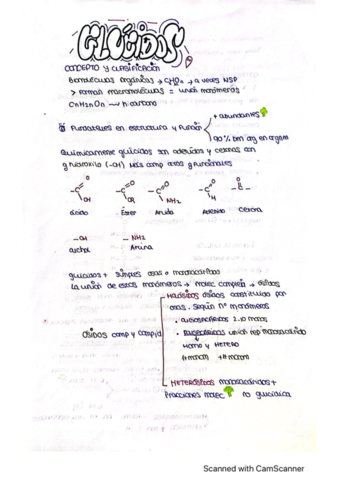 GLÚCIDOS
CONCEPTO Y CLASIFICACIÓN
Biomoléculas orgánicas → CHOn → a veces NSP
> Forman macromoléculas = unión monómeros
CnH2nOn → n carbono
+ abundantes
Funda en estructura y función
90% bm org en organ
Químicamente glúcidos son aldehídos y cetonas con
grupos hidroxilo (-OH) más comp otros g funcionales
Ácido Éster Amida Aldehído Cetona
-OH -NH2
alcohol Amina
glúcidos + simples osas = monosacárido
La unión de estos monómeros → molec compleja → ósidos
HOLÓSIDOS ósidos constituido por
osas. Según nº monómeros
• OLIGOSACÁRIDOS 2-10 monos
Ósidos comp y compjd
• Polisacáridos unión rep monosacárido
Homo y HETERO
HETERÓSIDOS monosacáridos +
Fracciones molec no glucídica
Scanned with CamScanner